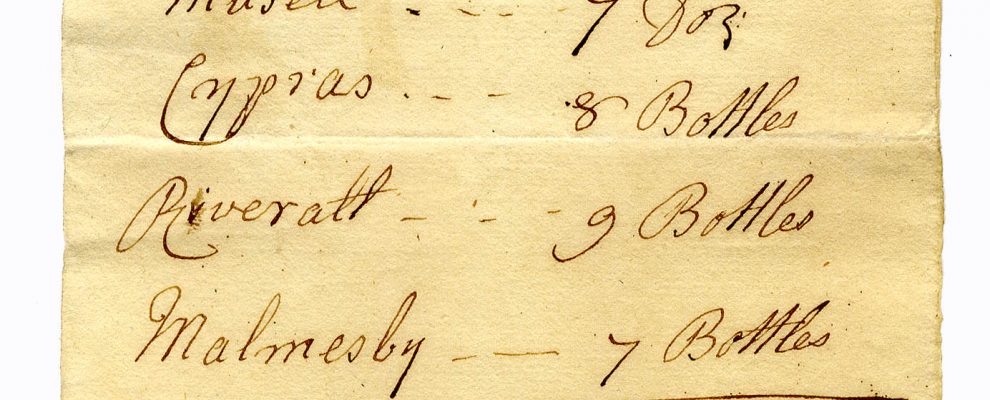 7 Doz
Cypras - - - 8 Bottles
Riveratt - - - 9 Bottles
Malmesby - — 7 Bottles